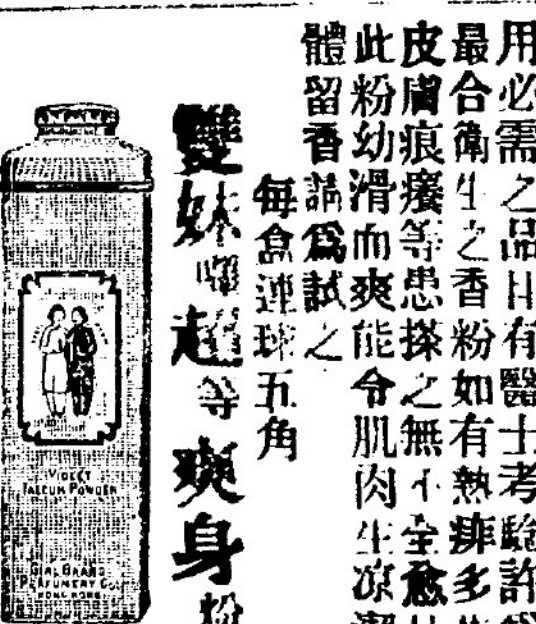 用必需之品日有醫士考驗許
最合衛生之香粉如有熱痱多
皮膚痕癢等患搽之無不全愈
此粉幼滑而爽能令肌肉生凉潔
體留香請為試之
每盒連球五角
雙妹嚜超等爽身粉
VIOLET
TALCUM POWDER
GIRL BRAND
PERFUMERY Co.
HONG KONG